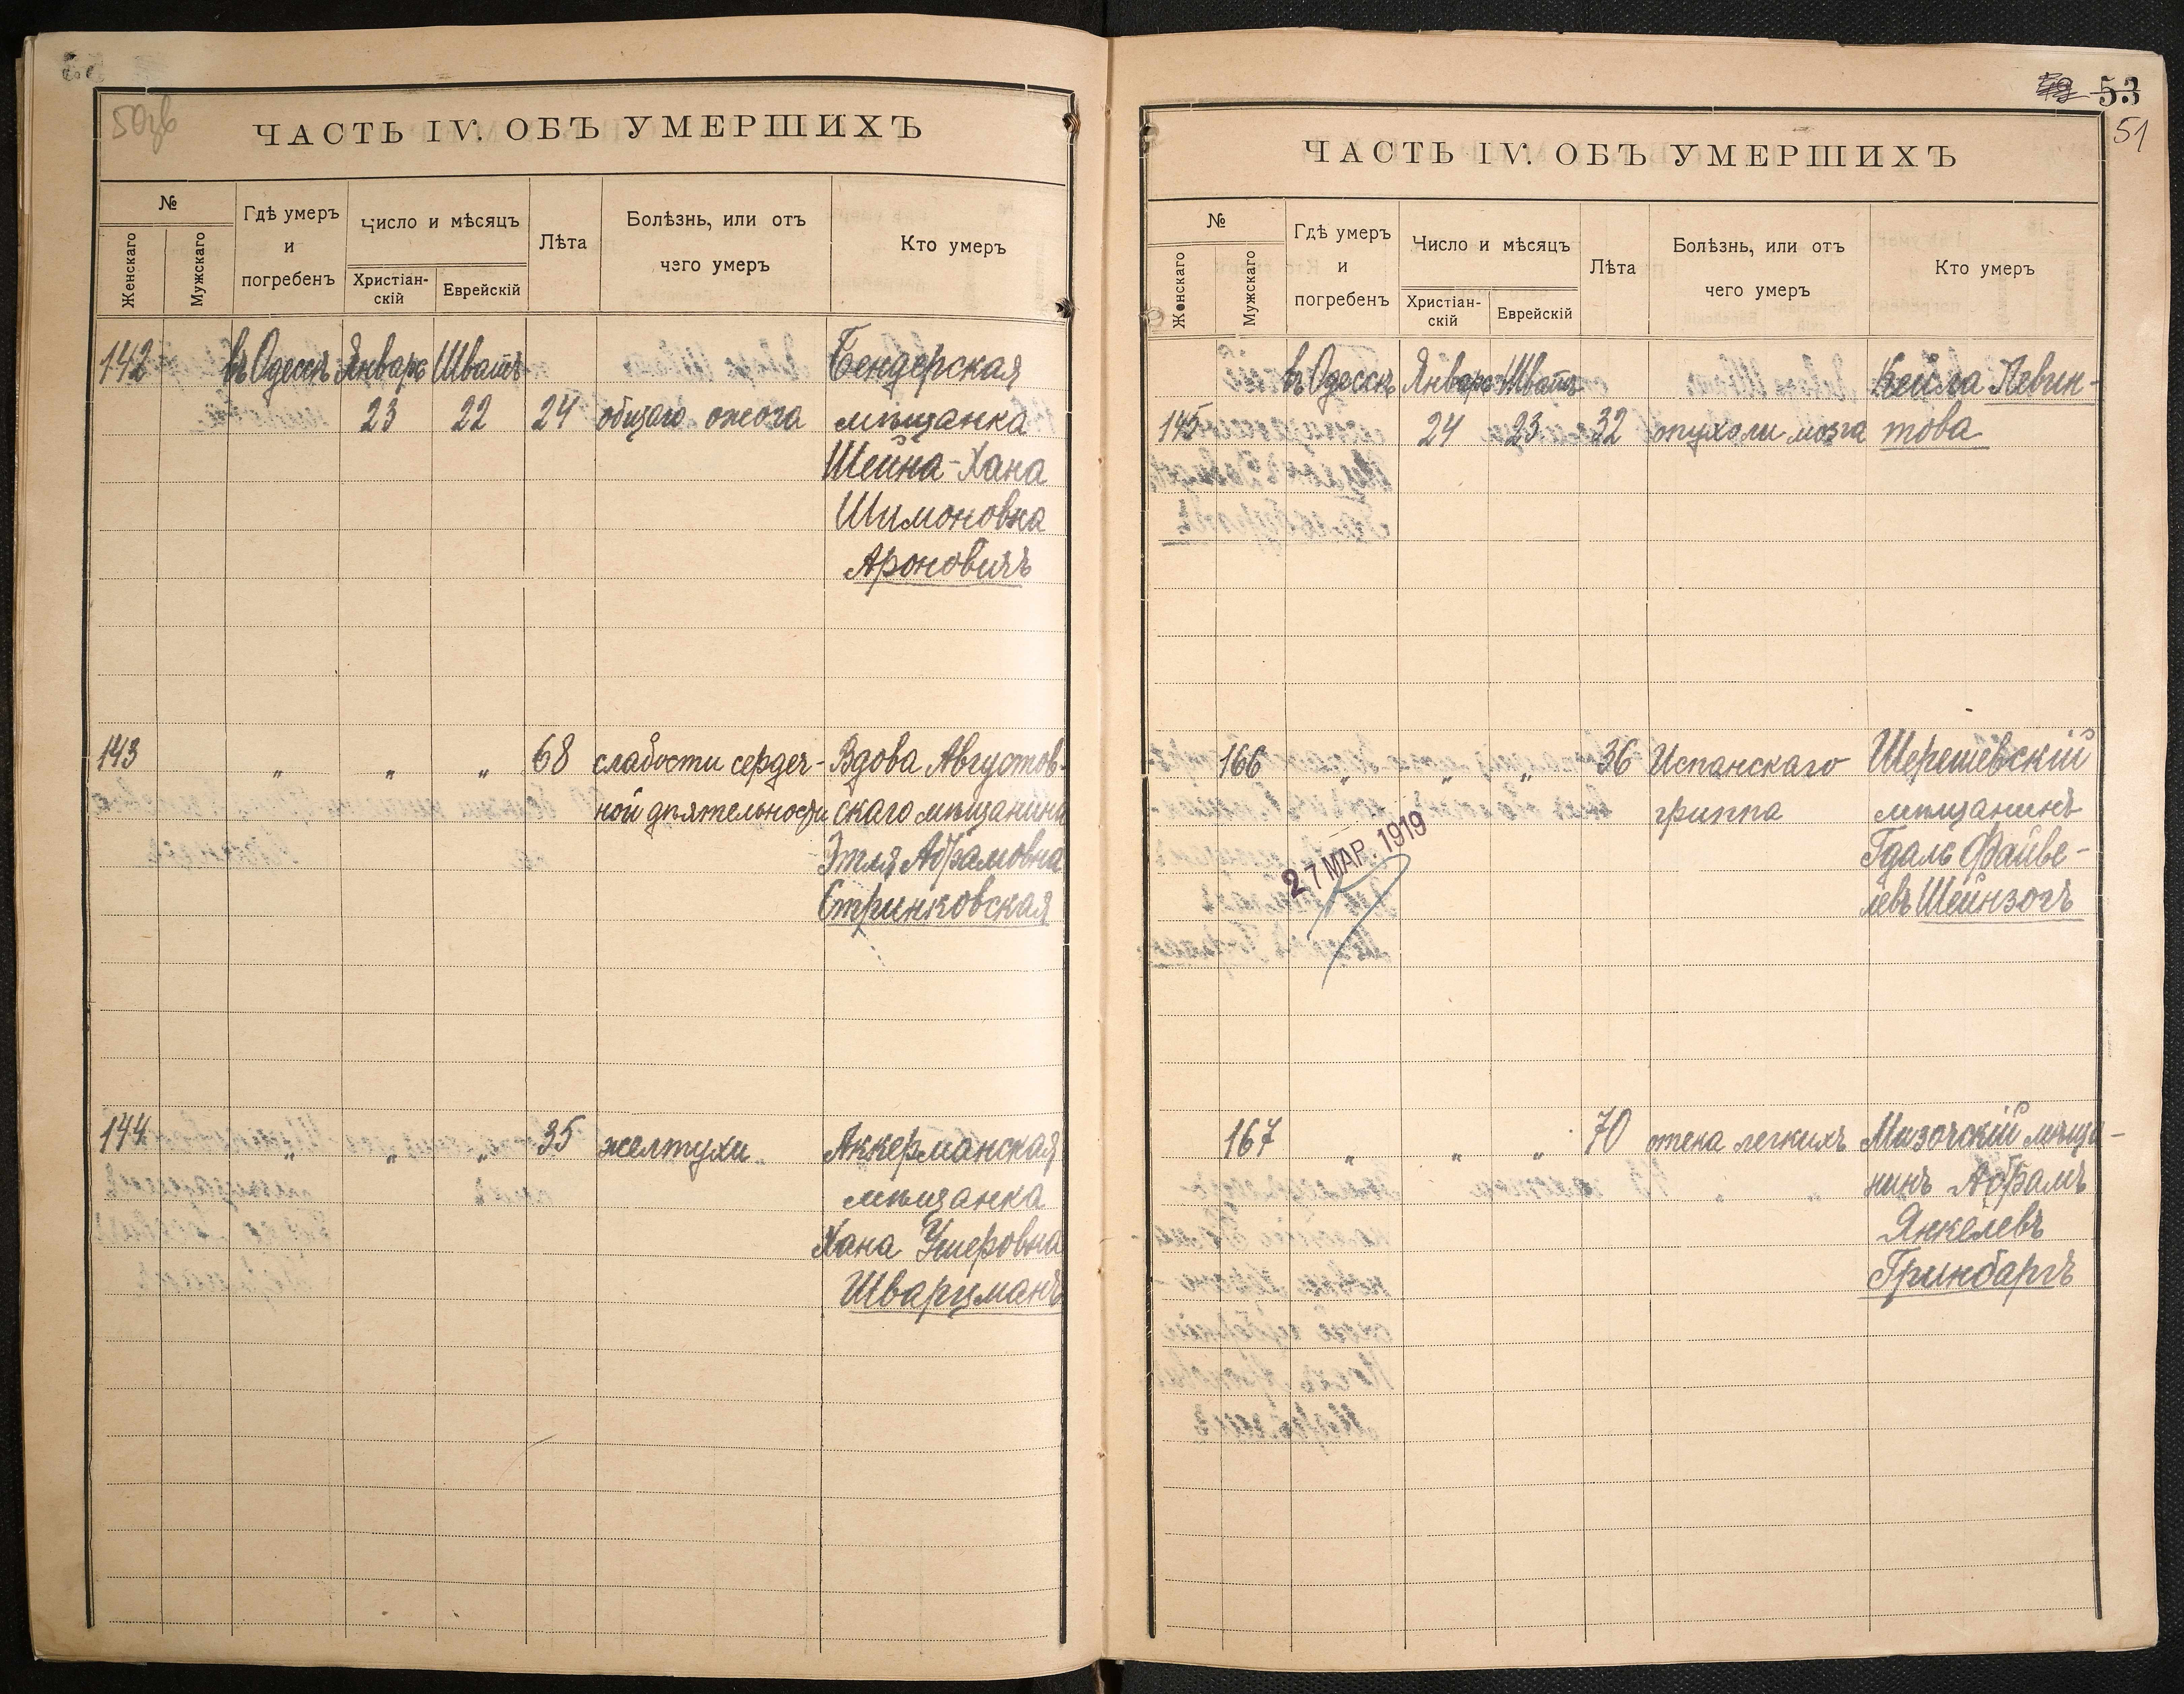 50зв
ЧАСТЬ IV. ОБЪ УМЕРШИХЪ
№
Женскаго
Мужскаго
Гдѣ умеръ
и
погребенъ
Число и мѣсяцъ
Христіан-
скій
Еврейскій
Лѣта
Болѣзнь, или отъ
чего умеръ
Кто умеръ
142 въ Одессѣ Январь Шватъ Бендерская
23 22 24 общаго ожога мѣщанка
Шейна-Хана
Шимоновна
Ароновичъ
143 „ „ „ 68 слабости сердеч- Вдова Августов-
ной дѣятельности скаго мѣщанина
Этля Абрамовна
Стринковская
144 „ „ „ 35 желтухи Аккерманская
мѣщанка
Хана Ушеровна
Шварцманъ
53
51
ЧАСТЬ IV. ОБЪ УМЕРШИХЪ
№
Женскаго
Мужскаго
Гдѣ умеръ
и
погребенъ
Число и мѣсяцъ
Христіан-
скій
Еврейскій
Лѣта
Болѣзнь, или отъ
чего умеръ
Кто умеръ
въ Одессѣ Январь Шватъ Бейла Левин-
145 24 23 32 опухоли мозга това
166 „ „ „ 36 Испанскаго Шерешевскій
гриппа мѣщанинъ
27 МАР. 1919
Гдаль Файве-
левъ Шейнзогъ
167 „ „ „ 70 отека легкихъ Мизочскій мѣща-
нинъ Абрамъ
Янкелевъ
Гринбаргъ